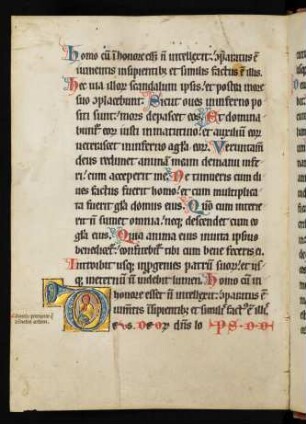 Homo cū ī honore eēt n̄ intellexit: ꝯparatus ē
iumentis insipientibꝫ et similis factus ē illis.
Hec uia illorꝝ scandalum ipsis: et postea in ore
suo ꝯplacebunt. Sicut oues in inferno po
siti sunt: mors depascet eos. Et domina
bunt̄ eorꝝ iusti in matutino: et auxiliū eorꝝ
ueterascet in inferno a gl̄a eorꝝ. Verumtam̄
deus redimet animā meam de manu infe
ri: cum acceperit me. Ne timueris cum di
ues factus fuerit homo: et cum multiplica
ta fuerit gl̄a domus eius. Qm̄ cum interie
rit n̄ sumet omnia: neqꝫ descendet cum eo
gl̄a eius. Quia anima eius in uita ipsius
benedicet̄: confitebit̄ tibi cum bene feceris ei.
Introibit usqꝫ in ꝓgenies patrū suorꝝ: et us
qꝫ in eternū n̄ uidebit lumen. Homo cū in
honore esset n̄ intellexit: ꝯparatus ē
iumētis īsipientibꝫ et simil fact⁹ ē illis.
eus deorꝝ dn̄s lo